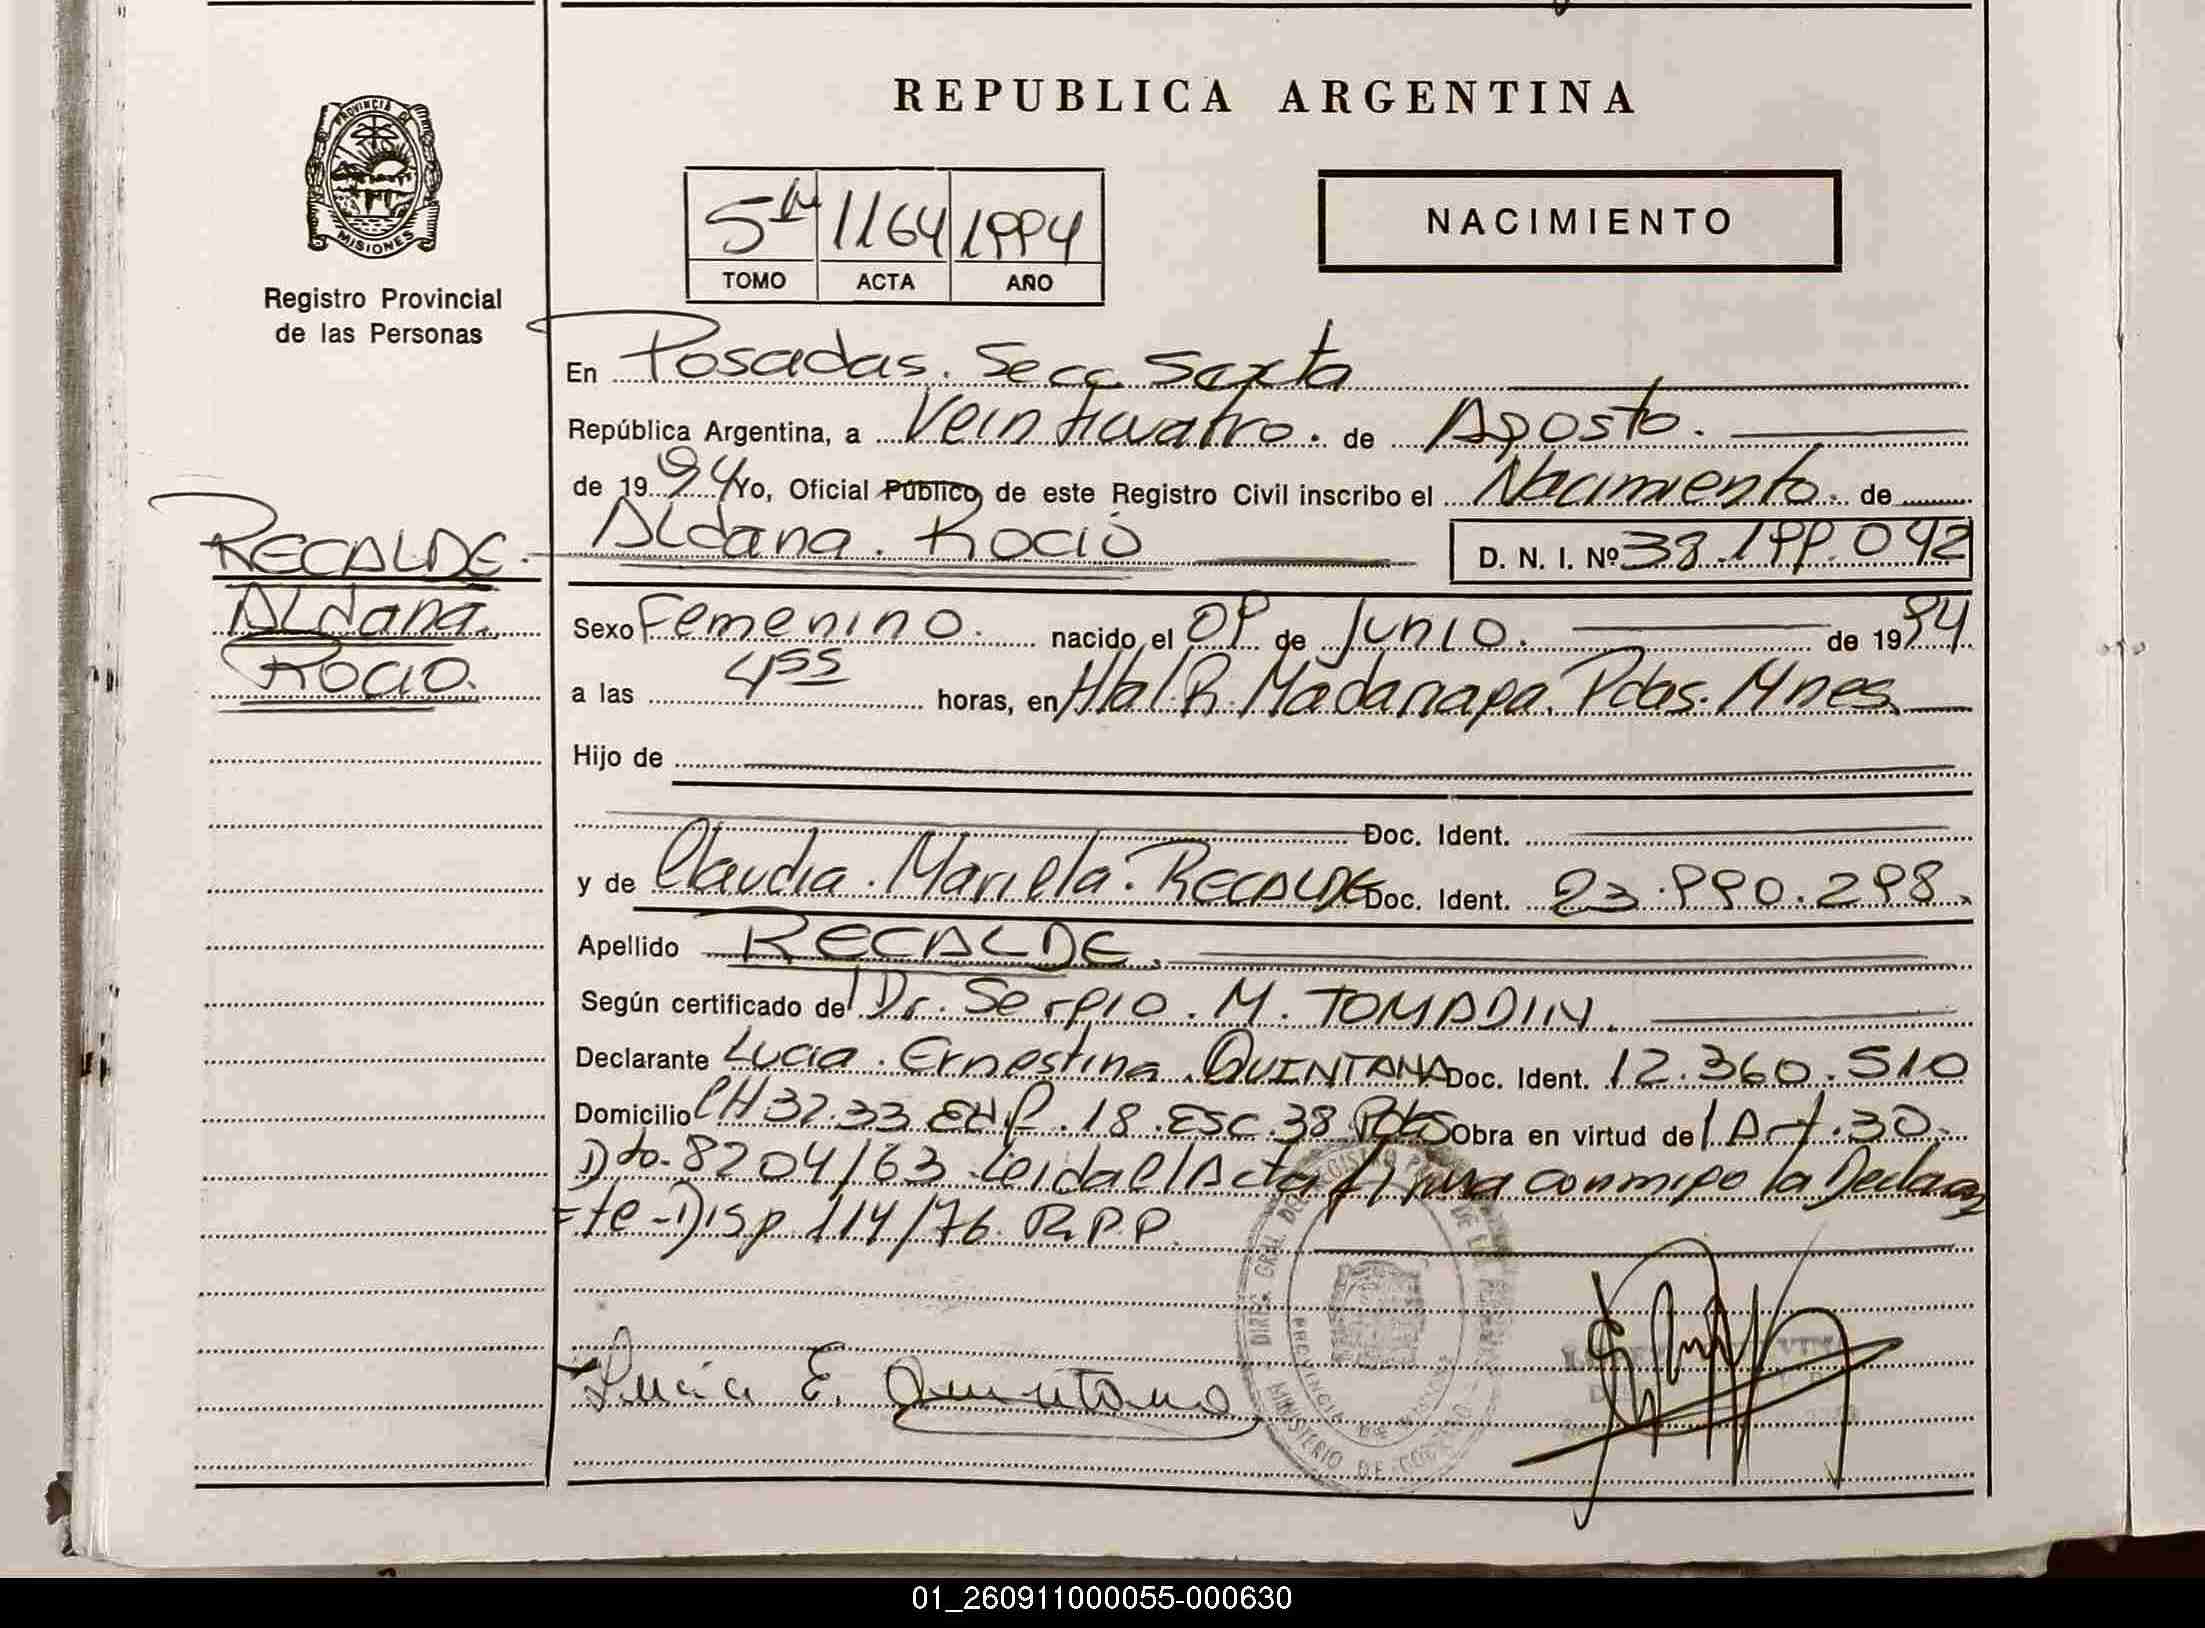 REPUBLICA ARGENTINA
PROVINCIA DE
MISIONES
Registro Provincial
de las Personas
5 1164 1994
TOMO ACTA AÑO
NACIMIENTO
En Posadas. Secc. Sexta
República Argentina, a Veinticuatro. de Agosto.
de 1994 Yo, Oficial Público de este Registro Civil inscribo el Nacimiento. de
RECALDE.
Aldana.
Rocio.
Aldana. Rocio D. N. I. Nº 38.199.042
Sexo Femenino. nacido el 09 de Junio. de 1994
a las 4 55 horas, en Htal R. Madariaga. Pdas. Mnes
Hijo de
Doc. Ident.
y de Claudia. Mariela. RECALDE Doc. Ident. 23.990.298.
Apellido RECALDE.
Según certificado del Dr. Sergio. M. TOMADIN.
Declarante Lucia. Ernestina. QUINTANA Doc. Ident. 12.360.510
Domicilio CH 32.33 Edif. 18. ESC. 38 Pdas Obra en virtud del Art. 30.
Dto. 8204/63 Leida el Acta firma conmigo la Declaran
=te-Disp. 114/76. R.P.P.
DIREC. GRAL. DEL REGISTRO DE LAS
PROVINCIA DE MISIONES
MINISTERIO DE GOBIERNO
Lucia E. Quintana
01_260911000055-000630